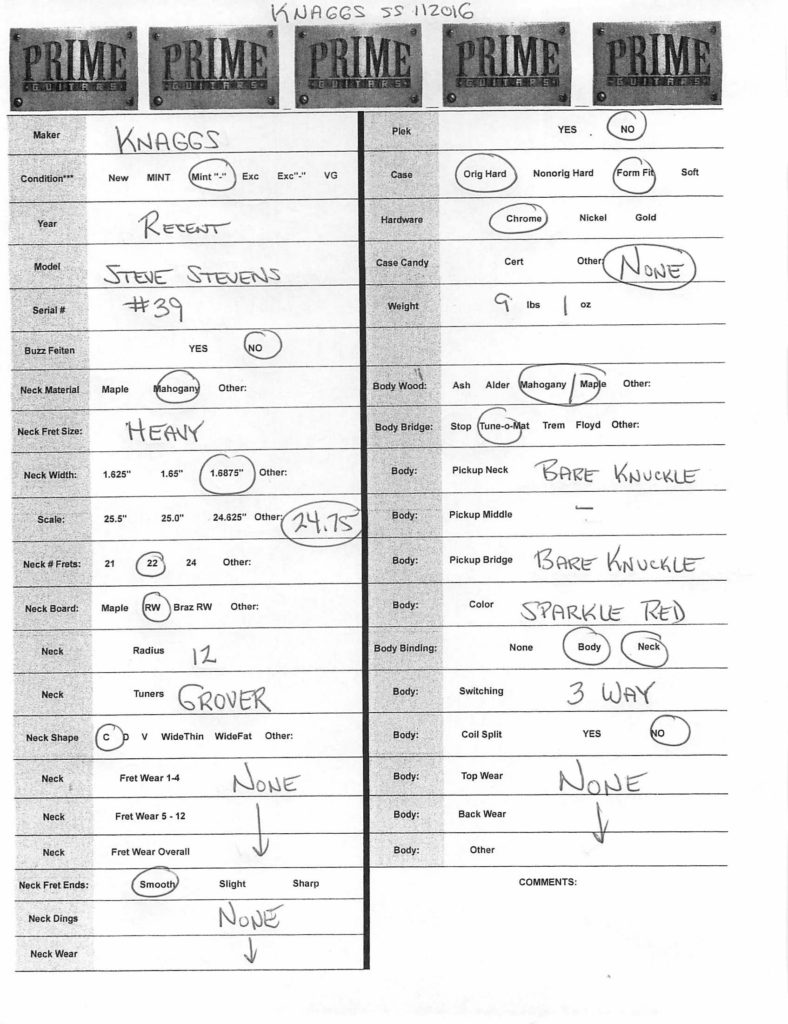 KNAGGS SS 112016
PRIME GUITARS PRIME GUITARS PRIME GUITARS PRIME GUITARS PRIME GUITARS
Maker KNAGGS
Condition*** New MINT Mint "-" Exc Exc"-" VG
Year RECENT
Model STEVE STEVENS
Serial # #39
Buzz Feiten YES NO
Neck Material Maple Mahogany Other:
Neck Fret Size: HEAVY
Neck Width: 1.625" 1.65" 1.6875" Other:
Scale: 25.5" 25.0" 24.625" Other: 24.75
Neck # Frets: 21 22 24 Other:
Neck Board: Maple RW Braz RW Other:
Neck Radius 12
Neck Tuners GROVER
Neck Shape C D V WideThin WideFat Other:
Neck Fret Wear 1-4 NONE
Neck Fret Wear 5 - 12
Neck Fret Wear Overall
Neck Fret Ends: Smooth Slight Sharp
Neck Dings NONE
Neck Wear
Plek YES NO
Case Orig Hard Nonorig Hard Form Fit Soft
Hardware Chrome Nickel Gold
Case Candy Cert Other: NONE
Weight 9 lbs 1 oz
Body Wood: Ash Alder Mahogany / Maple Other:
Body Bridge: Stop Tune-o-Mat Trem Floyd Other:
Body: Pickup Neck BARE KNUCKLE
Body: Pickup Middle —
Body: Pickup Bridge BARE KNUCKLE
Body: Color SPARKLE RED
Body Binding: None Body Neck
Body: Switching 3 WAY
Body: Coil Split YES NO
Body: Top Wear NONE
Body: Back Wear
Body: Other
COMMENTS: